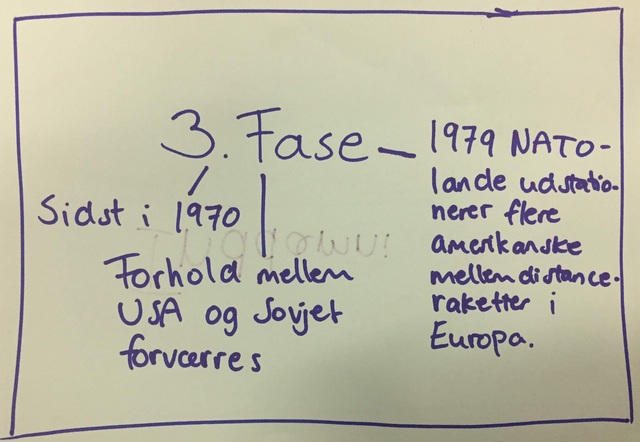 3. Fase
Sidst i 1970
Forhold mellem
USA og Sovjet
forværres
1979 NATO-
lande udstatio-
nerer flere
amerikanske
mellemdistance-
raketter i
Europa.